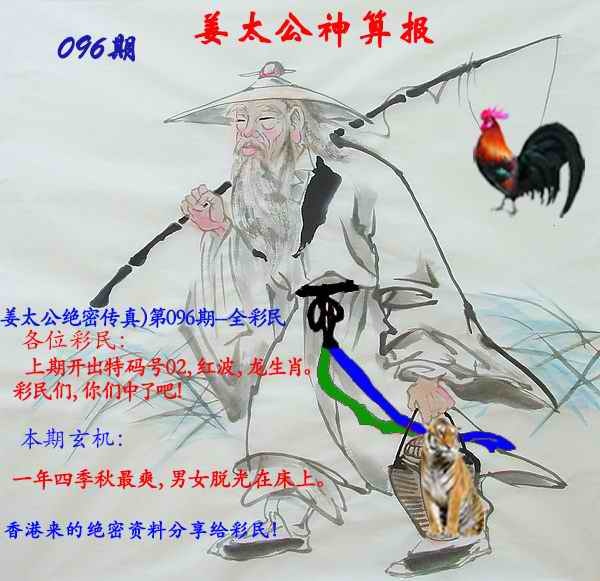 姜太公神算报
096期
姜太公绝密传真)第096期–全彩民
各位彩民:
上期开出特码号02,红波,龙生肖。
彩民们,你们中了吧!
本期玄机:
一年四季秋最爽,男女脱光在床上。
香港来的绝密资料分享给彩民!